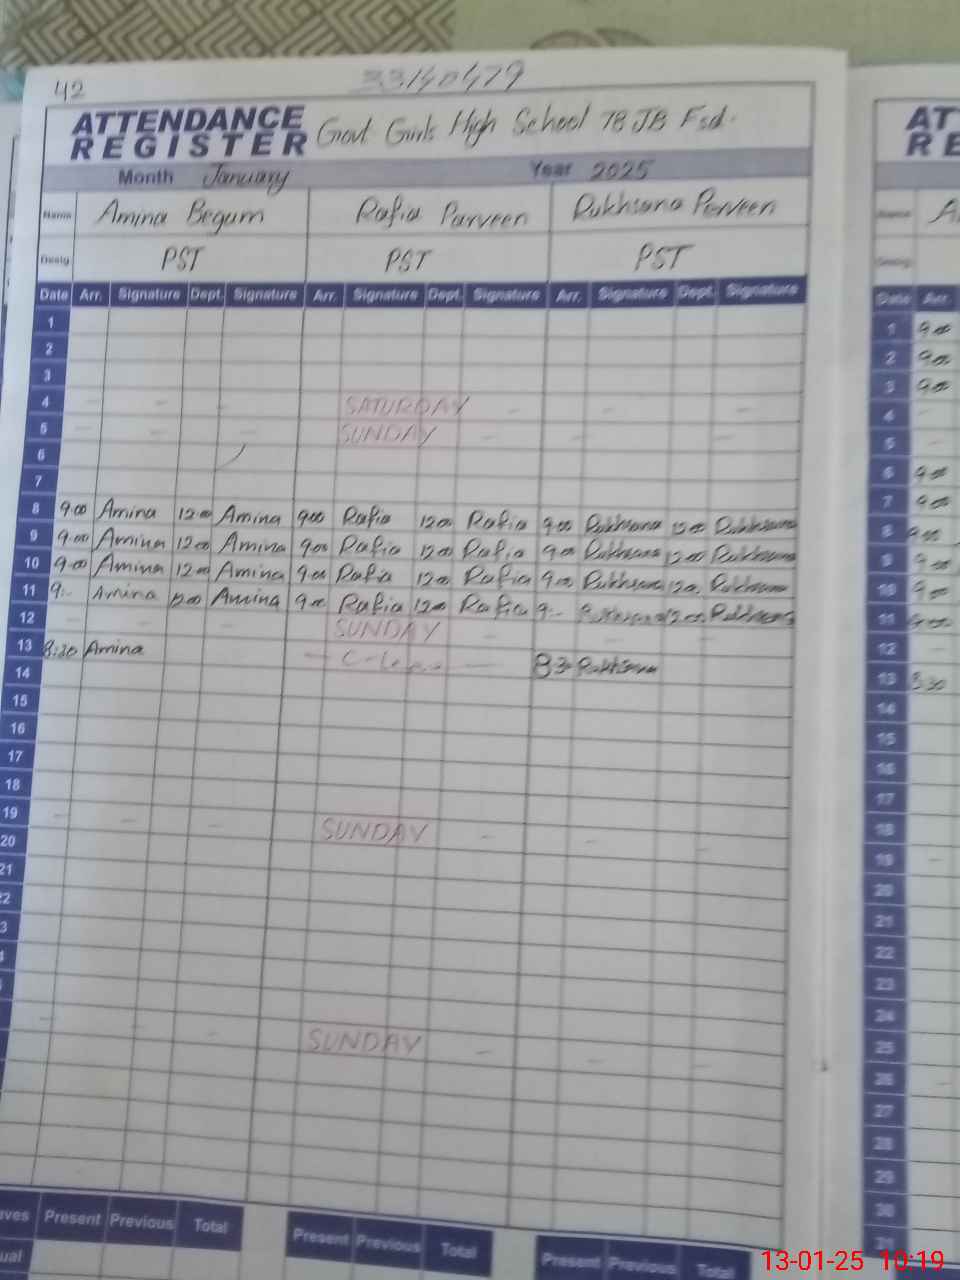 42
33140479
ATTENDANCE REGISTER Govt Girls High School 7B JB Fsd.
Month January Year 2025
Name Amina Begum Rafia Parveen Rukhsana Perveen
Desig PST PST PST
Date Arr. Signature Dept. Signature Arr. Signature Dept. Signature Arr. Signature Dept. Signature
1
2
3
4 SATURDAY
5 SUNDAY
6
7
8 9:00 Amina 12:00 Amina 9:00 Rafia 12:00 Rafia 9:00 Rukhsana 12:00 Rukhsana
9 9:00 Amina 12:00 Amina 9:00 Rafia 12:00 Rafia 9:00 Rukhsana 12:00 Rukhsana
10 9:00 Amina 12:00 Amina 9:00 Rafia 12:00 Rafia 9:00 Rukhsana 12:00 Rukhsana
11 9:- Amina 12:00 Amina 9:00 Rafia 12:00 Rafia 9:- Rukhsana 12:00 Rukhsana
12 SUNDAY
13 8:30 Amina C-Leave 8:30 Rukhsana
14
15
16
17
18
19 SUNDAY
20
21
22
SUNDAY
Present Previous Total Present Previous Total Present Previous Total
AT
RE
Date Arr.
1 9:00
2 9:00
3 9:00
4
5
6 9:00
7 9:00
8 9:00
9 9:00
10 9:00
11 9:00
12
13 8:30
14
15
16
17
18
19
20
21
22
23
24
25
26
27
28
29
30
31
13-01-25 10:19